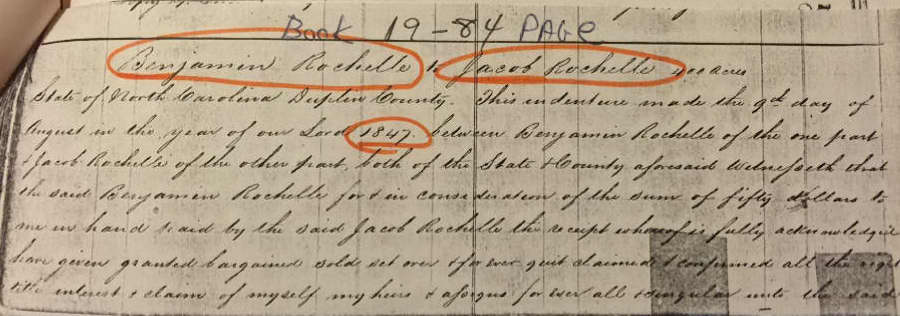 Book 19-84 PAGE
Benjamin Rochelle to Jacob Rochelle 400 acres
State of North Carolina Duplin County. This indenture made the 9th day of
August in the year of our Lord 1847. between Benjamin Rochelle of the one part
& Jacob Rochelle of the other part, both of the State & County aforesaid Witnesseth that
the said Benjamin Rochelle for & in consideration of the sum of fifty dollars to
me in hand paid by the said Jacob Rochelle the receipt whereof is fully acknowledged
have given granted bargained sold set over & forever quit claimed & confirmed all the right
title interest & claim of myself my heirs & assigns for ever all & singular unto the said